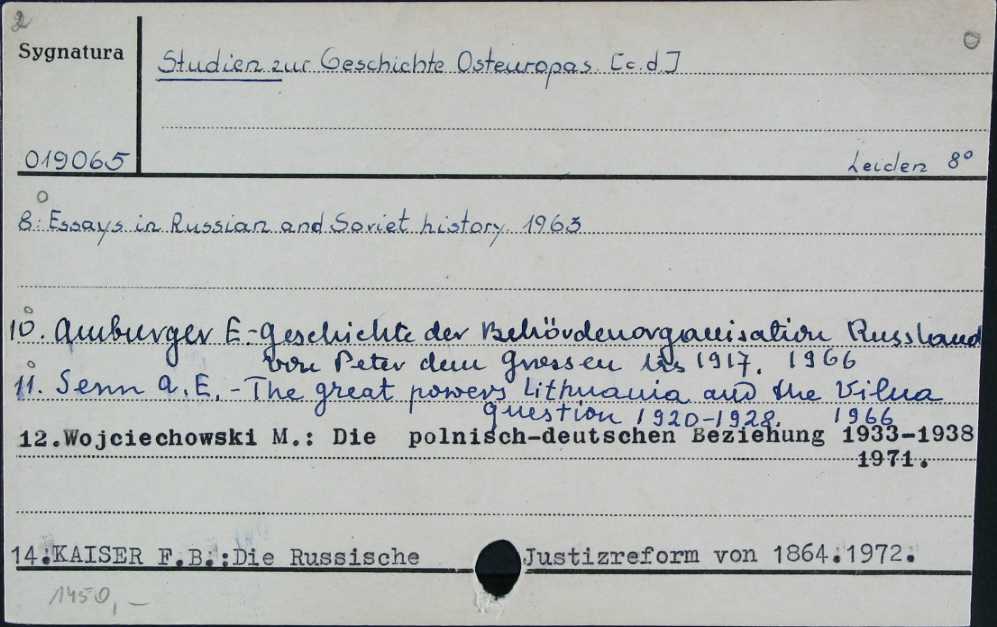 2
Sygnatura
Studien zur Geschichte Osteuropas. [c.d.]
019065
Leiden 8°
8. Essays in Russian and Soviet history. 1963
10. Amburger E - Geschichte der Behördenorganisation Russland
von Peter dem Grossen bis 1917. 1966
11. Senn A.E. - The great powers Lithuania and the Vilna
question 1920-1928. 1966
12.Wojciechowski M.: Die polnisch-deutschen Beziehung 1933-1938
1971.
14.KAISER F.B.:Die Russische Justizreform von 1864.1972.
1450,-